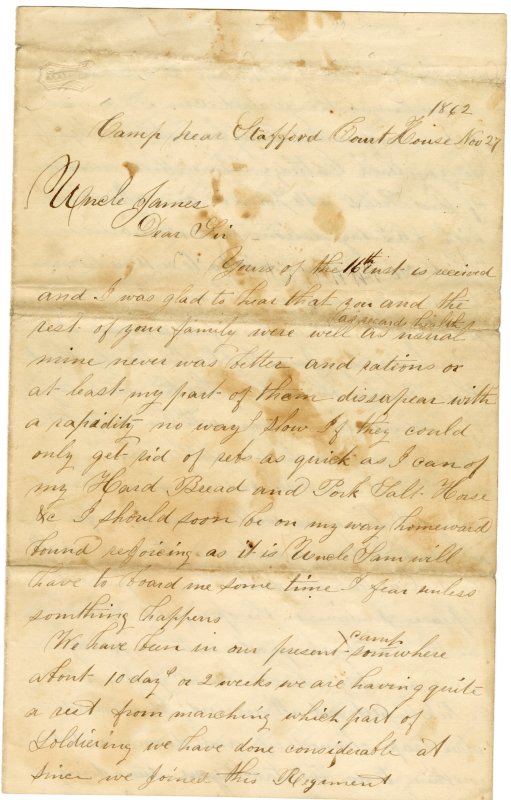 1862
Camp near Stafford Court House Nov 27
Uncle James
Dear Sir
Yours of the 16th inst is received
and I was glad to hear that you and the
rest of your family were well as usual
as regards health
mine never was better and rations or
at least my part of them dissapear with
a rapidity no way slow If they could
only get rid of rebs as quick as I can of
my Hard Bread and Pork Salt Horse
&c I should soon be on my way homeward
bound rejoicing as it is Uncle Sam will
have to board me some time I fear unless
somthing happens
We have been in our present camp somwhere
about 10 days or 2 weeks we are having quite
a rest from marching which part of
Soldiering we have done considerable at
since we joined this Regiment